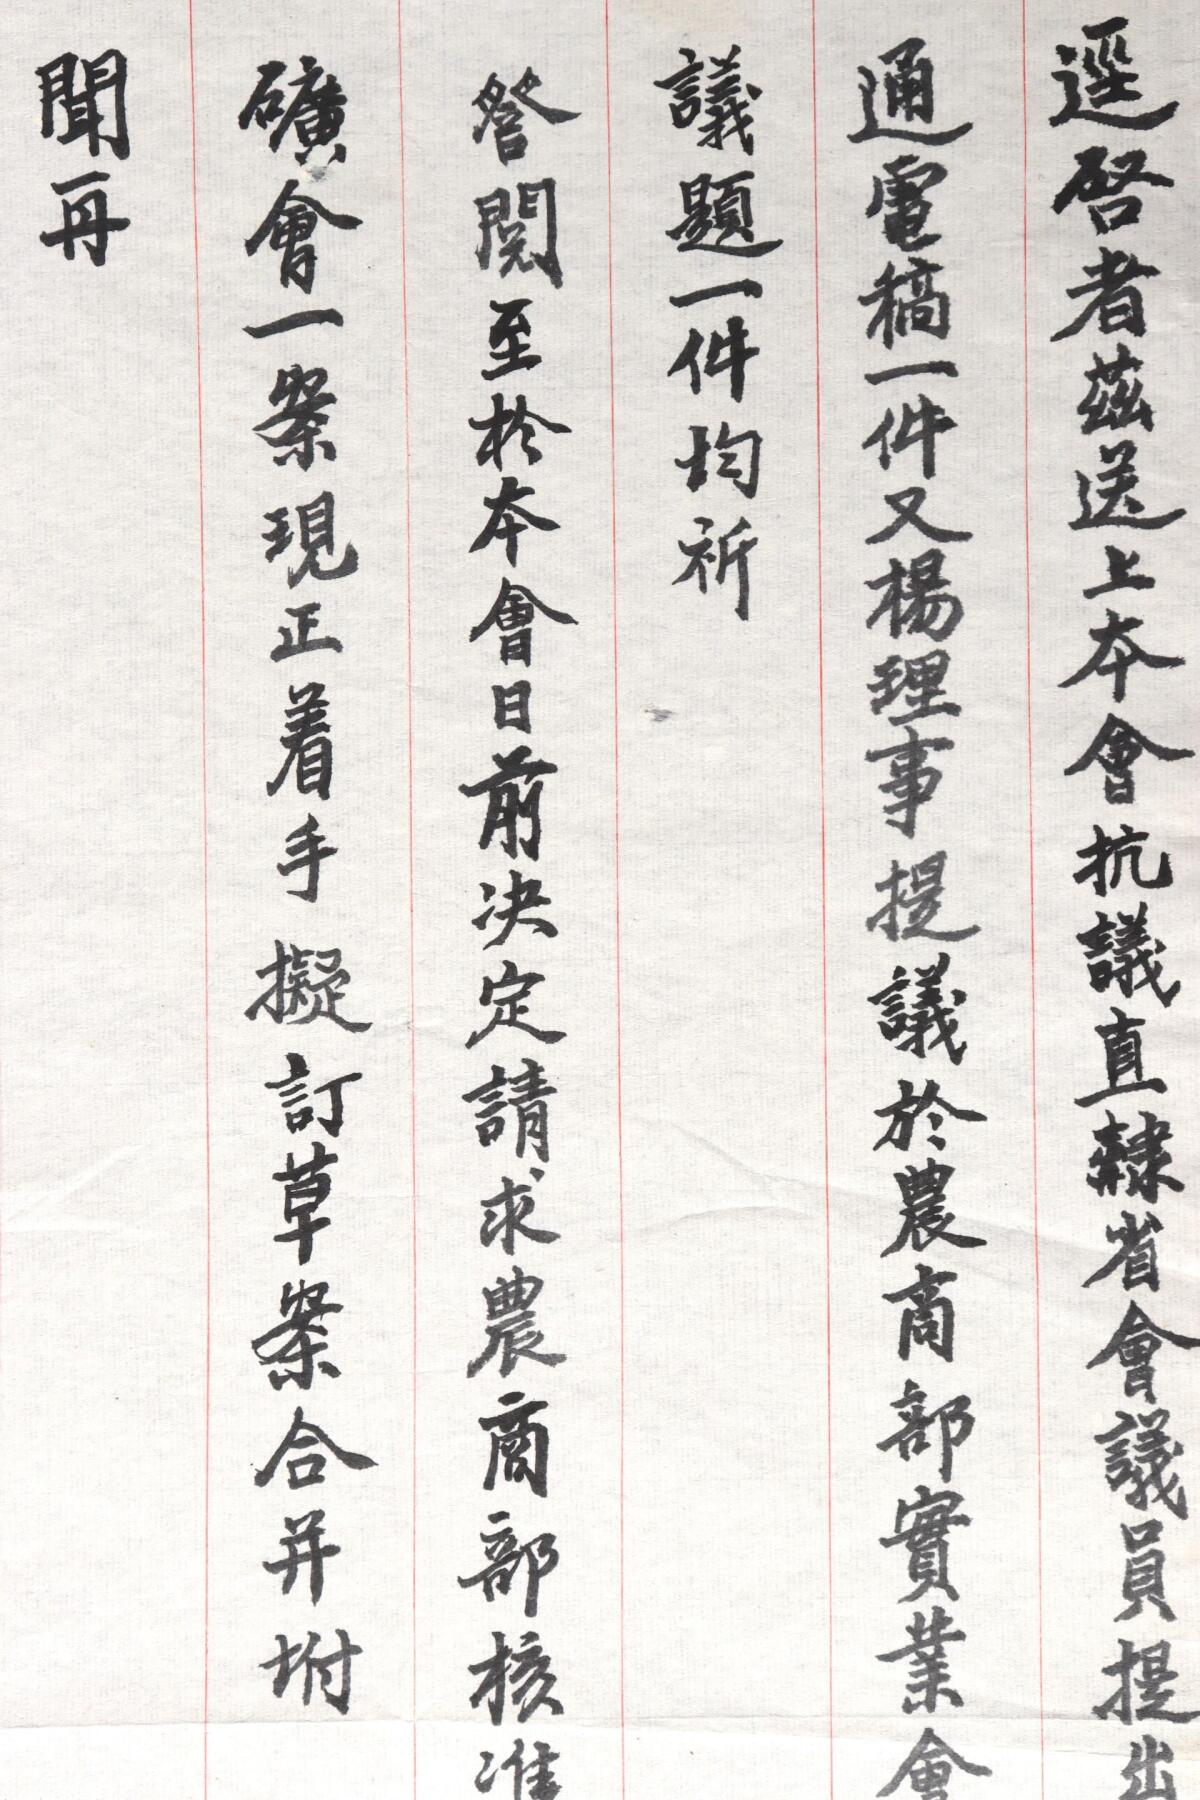 逕啓者茲送上本會抗議直隸省會議員提出
通電稿一件又楊理事提議於農商部實業會
議題一件均祈
詧閱至於本會日前決定請求農商部核准
礦會一案現正着手擬訂草案合并坿
聞再